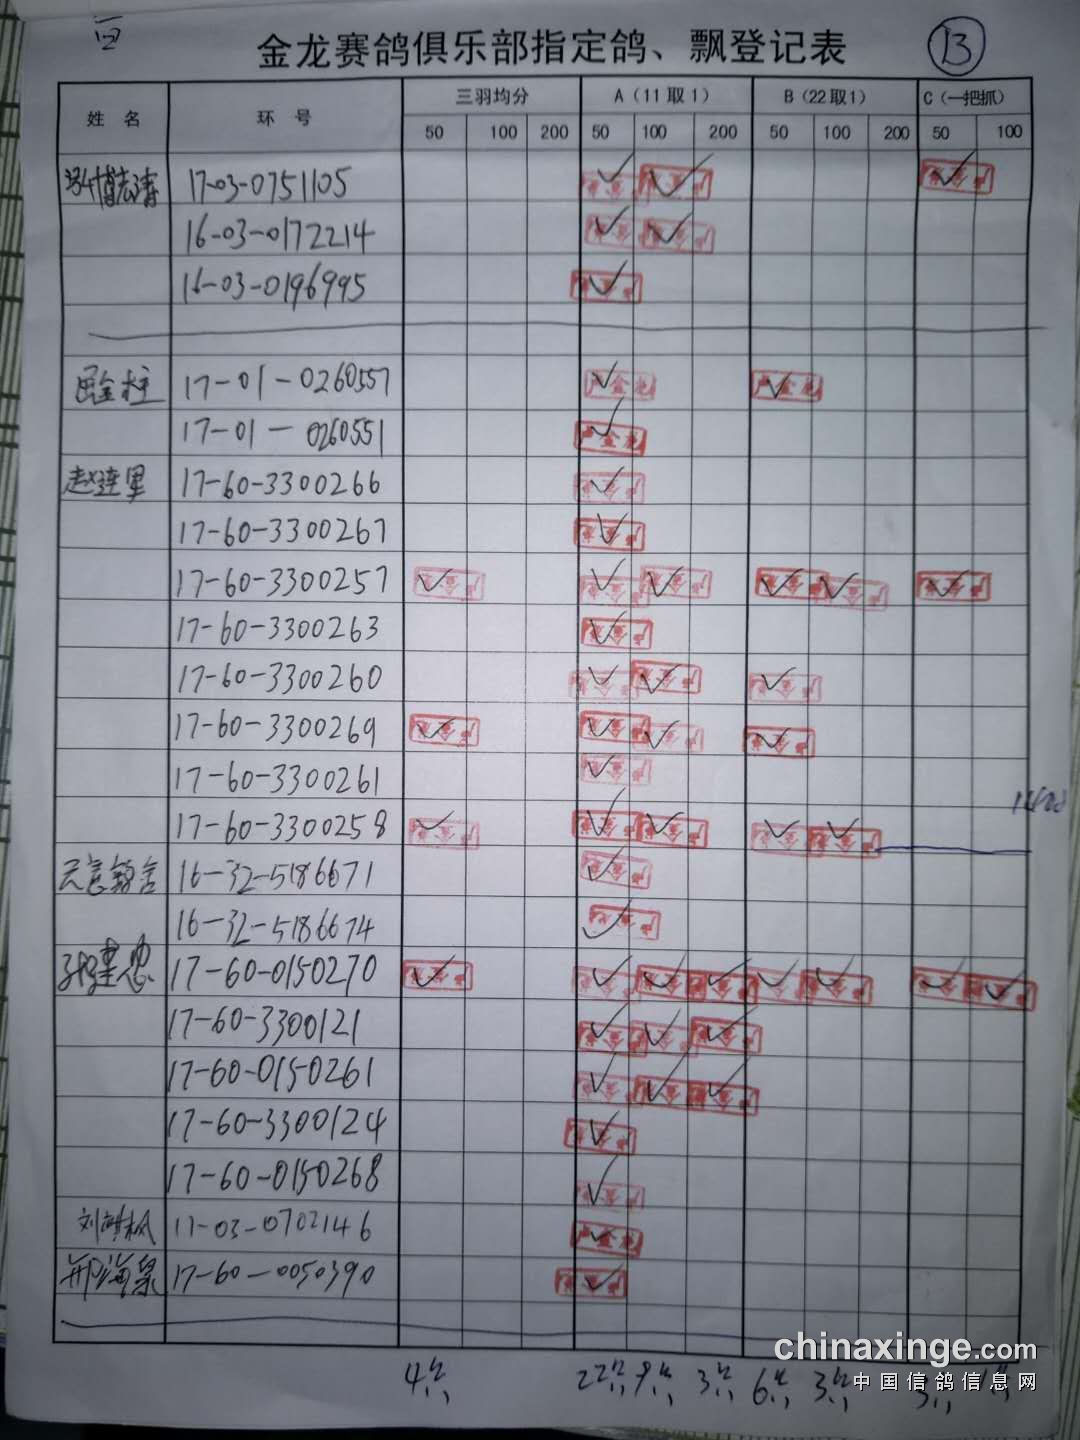 金龙赛鸽俱乐部指定鸽、飘登记表
13
姓 名 环 号 三羽均分 A（11取1） B（22取1） C（一把抓）
50 100 200 50 100 200 50 100 200 50 100
17-03-0751105 ✓ ✓ ✓
16-03-0172214 ✓ ✓
16-03-0196995 ✓
17-01-0260557 ✓ ✓
17-01-0260551 ✓
赵连군 17-60-3300266 ✓
17-60-3300267 ✓
17-60-3300257 ✓ ✓ ✓ ✓ ✓ ✓
17-60-3300263 ✓
17-60-3300260 ✓ ✓ ✓
17-60-3300269 ✓ ✓ ✓ ✓
17-60-3300261 ✓
17-60-3300258 ✓ ✓ ✓ ✓ ✓
16-32-5186671 ✓
16-32-5186674 ✓
17-60-0150270 ✓ ✓ ✓ ✓ ✓ ✓ ✓ ✓
17-60-3300121 ✓ ✓ ✓
17-60-0150261 ✓ ✓ ✓
17-60-3300124 ✓
17-60-0150268 ✓
17-03-0702146 ✓
邢海泉 17-60-0050390 ✓
4 22 9 3 6 3 3 1
chinaxinge.com
中国信鸽信息网